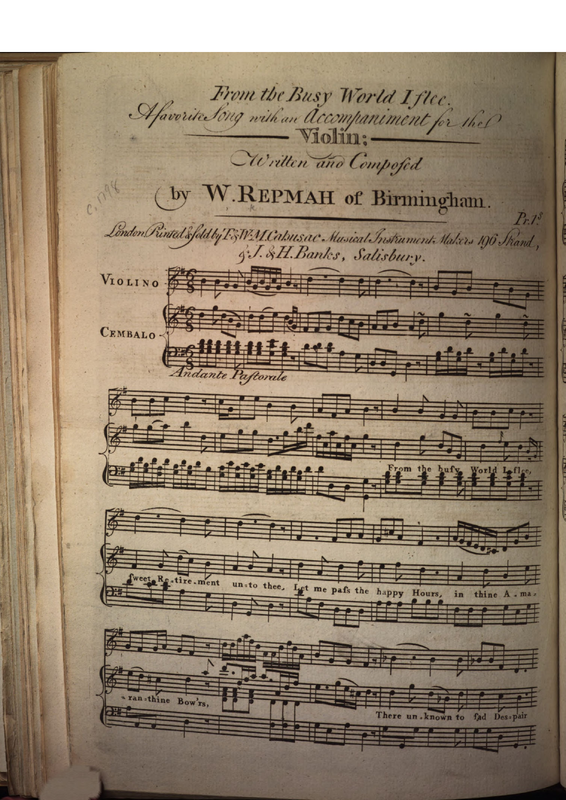 From the Busy World I flee.
A favorite Song with an Accompaniment for the
Violin;
Written and Composed
by W. REPMAH of Birmingham.
Pr. 1s
London Printed & sold by T. & W. M. Cahusac Musical Instrument Makers 196 Strand,
& J. & H. Banks, Salisbury.
c. 1798
VIOLINO
CEMBALO
Andante Pastorale
From the busy World I flee,
sweet Re-tire-ment un-to thee, Let me pass the happy Hours, in thine A-ma-
-ran-thine Bow'rs,
There un-known to sad Despair